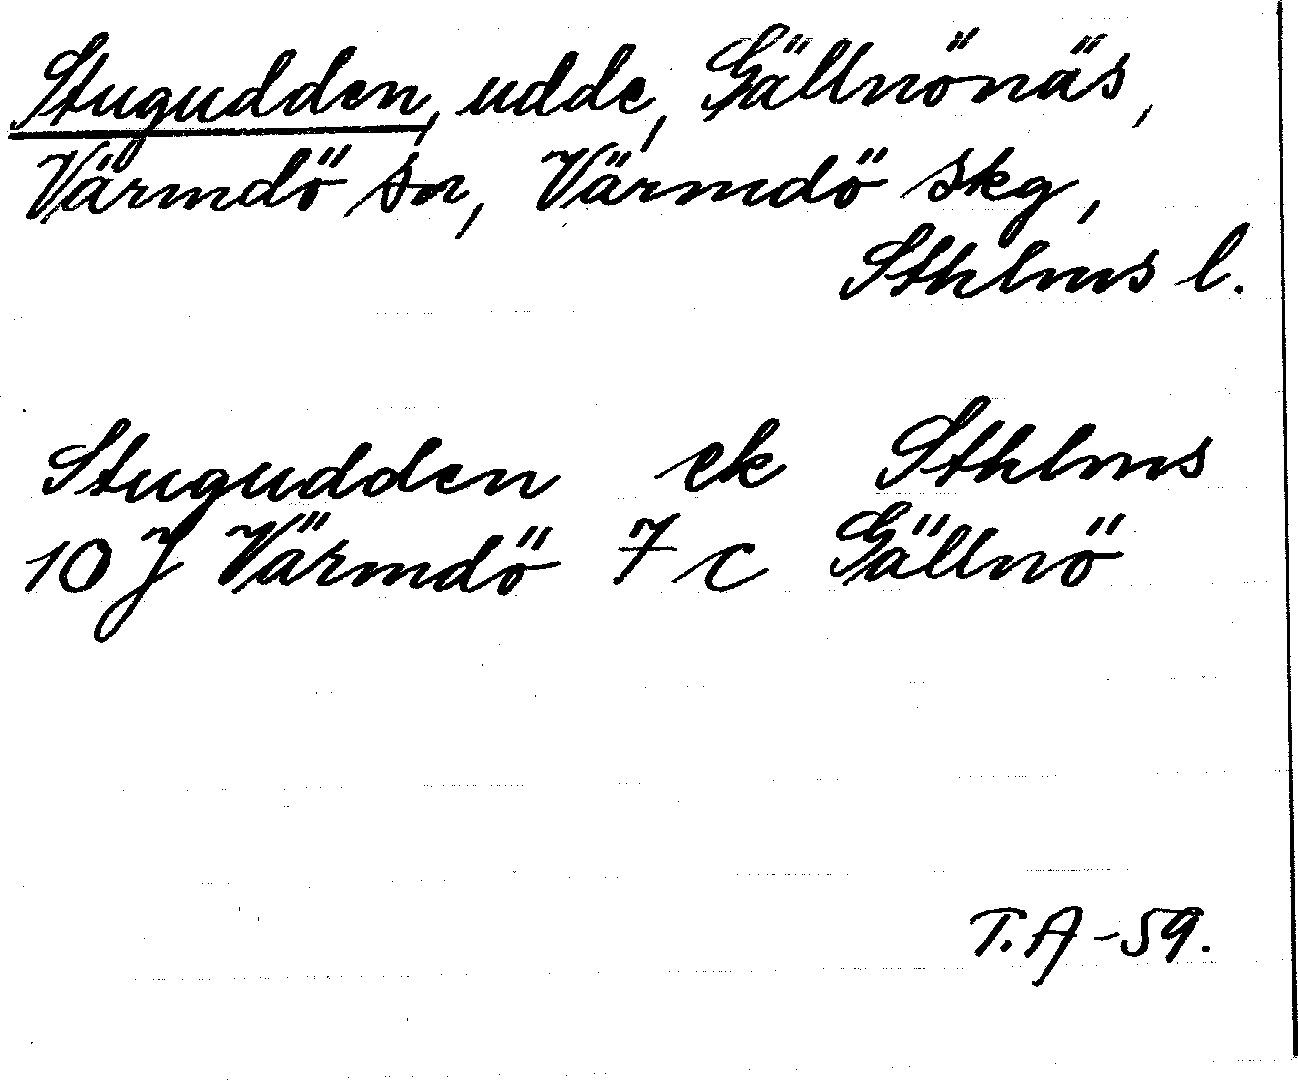 Stugudden, udde, Gällnönäs,
Värmdö sn, Värmdö skg,
Sthlms l.
Stugudden ek Sthlms
10 J Värmdö 7 c Gällnö
T.A -59.